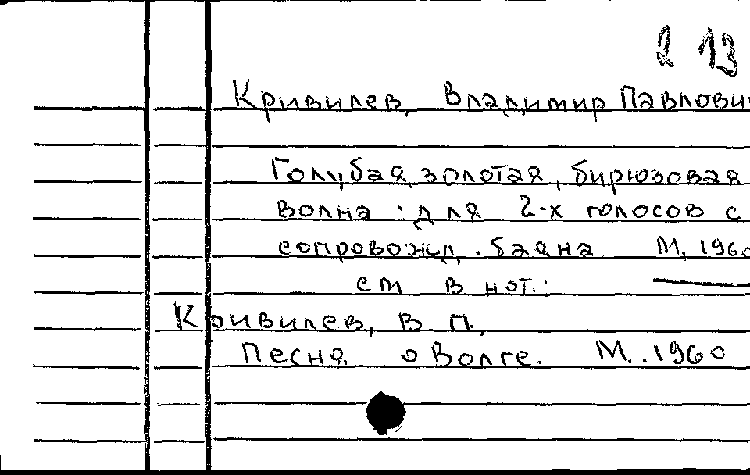 2 13
Кривилев, Владимир Павлович
Голубая, золотая, бирюзовая
волна : для 2-х голосов с
сопровожд. баяна М, 1960
см в нот.:
Кривилев, В П.
Песня о Волге. М. 1960